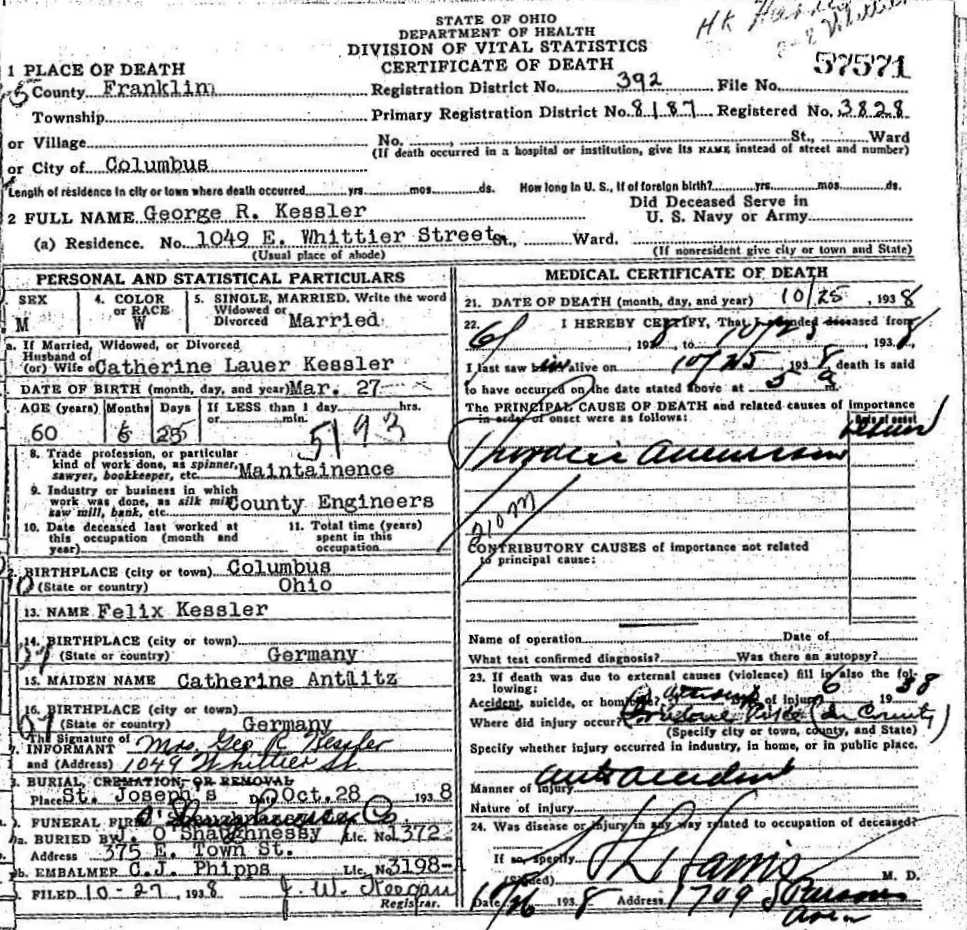 STATE OF OHIO
DEPARTMENT OF HEALTH
DIVISION OF VITAL STATISTICS
CERTIFICATE OF DEATH
HK
57571
1 PLACE OF DEATH
County Franklin
Registration District No. 392 File No.
Township
Primary Registration District No. 8187 Registered No. 3828
or Village
No. St., Ward
or City of Columbus
(If death occurred in a hospital or institution, give its NAME instead of street and number)
Length of residence in city or town where death occurred yrs. mos. ds. How long in U. S., if of foreign birth? yrs. mos. ds.
2 FULL NAME George R. Kessler
Did Deceased Serve in
U. S. Navy or Army
(a) Residence. No. 1049 E. Whittier Street St., Ward.
(Usual place of abode) (If nonresident give city or town and State)
PERSONAL AND STATISTICAL PARTICULARS
SEX
M
4. COLOR
or RACE
W
5. SINGLE, MARRIED. Write the word
Widowed or
Divorced Married
a. If Married, Widowed, or Divorced
Husband of
(or) Wife o Catherine Lauer Kessler
DATE OF BIRTH (month, day, and year) Mar. 27
AGE (years) Months Days If LESS than 1 day hrs.
or min.
60 6 25
5193
8. Trade profession, or particular
kind of work done, as spinner,
sawyer, bookkeeper, etc. Maintainence
9. Industry or business in which
work was done, as silk mill,
saw mill, bank, etc. County Engineers
10. Date deceased last worked at
this occupation (month and
year)
11. Total time (years)
spent in this
occupation
2. BIRTHPLACE (city or town) Columbus
(State or country) Ohio
13. NAME Felix Kessler
14. BIRTHPLACE (city or town)
(State or country) Germany
15. MAIDEN NAME Catherine Antlitz
16. BIRTHPLACE (city or town)
(State or country) Germany
The Signature of
INFORMANT Mrs. Geo R Kessler
and (Address) 1049 Whittier St
BURIAL, CREMATION, OR REMOVAL
Place St. Joseph s Date Oct. 28 1938
FUNERAL FIRM
BURIED BY J. O Shaughnessy Lic. No. 1372
Address 375 E. Town St.
EMBALMER C.J. Phipps Lic. No. 3198-
FILED 10-27, 1938 J. W. Keegan
Registrar.
MEDICAL CERTIFICATE OF DEATH
21. DATE OF DEATH (month, day, and year) 10/25, 1938
22. I HEREBY CERTIFY, That I attended deceased from
6/ , 1938, to 10/25, 1938
I last saw him alive on 10/25 1938 death is said
to have occurred on the date stated above at m.
The PRINCIPAL CAUSE OF DEATH and related causes of importance
in order of onset were as follows:
Date of onset
Thoracic aneurism
210M
CONTRIBUTORY CAUSES of importance not related
to principal cause:
Name of operation Date of
What test confirmed diagnosis? Was there an autopsy?
23. If death was due to external causes (violence) fill in also the fol-
lowing:
Accident, suicide, or homicide? accident Date of injury 6 1938
Where did injury occur? (In County)
(Specify city or town, county, and State)
Specify whether injury occurred in industry, in home, or in public place.
Manner of injury auto accident
Nature of injury
24. Was disease or injury in any way related to occupation of deceased?
If so, specify
(Signed) Harris M. D.
Date 10/26 1938 Address 1709 S Parsons
Ave